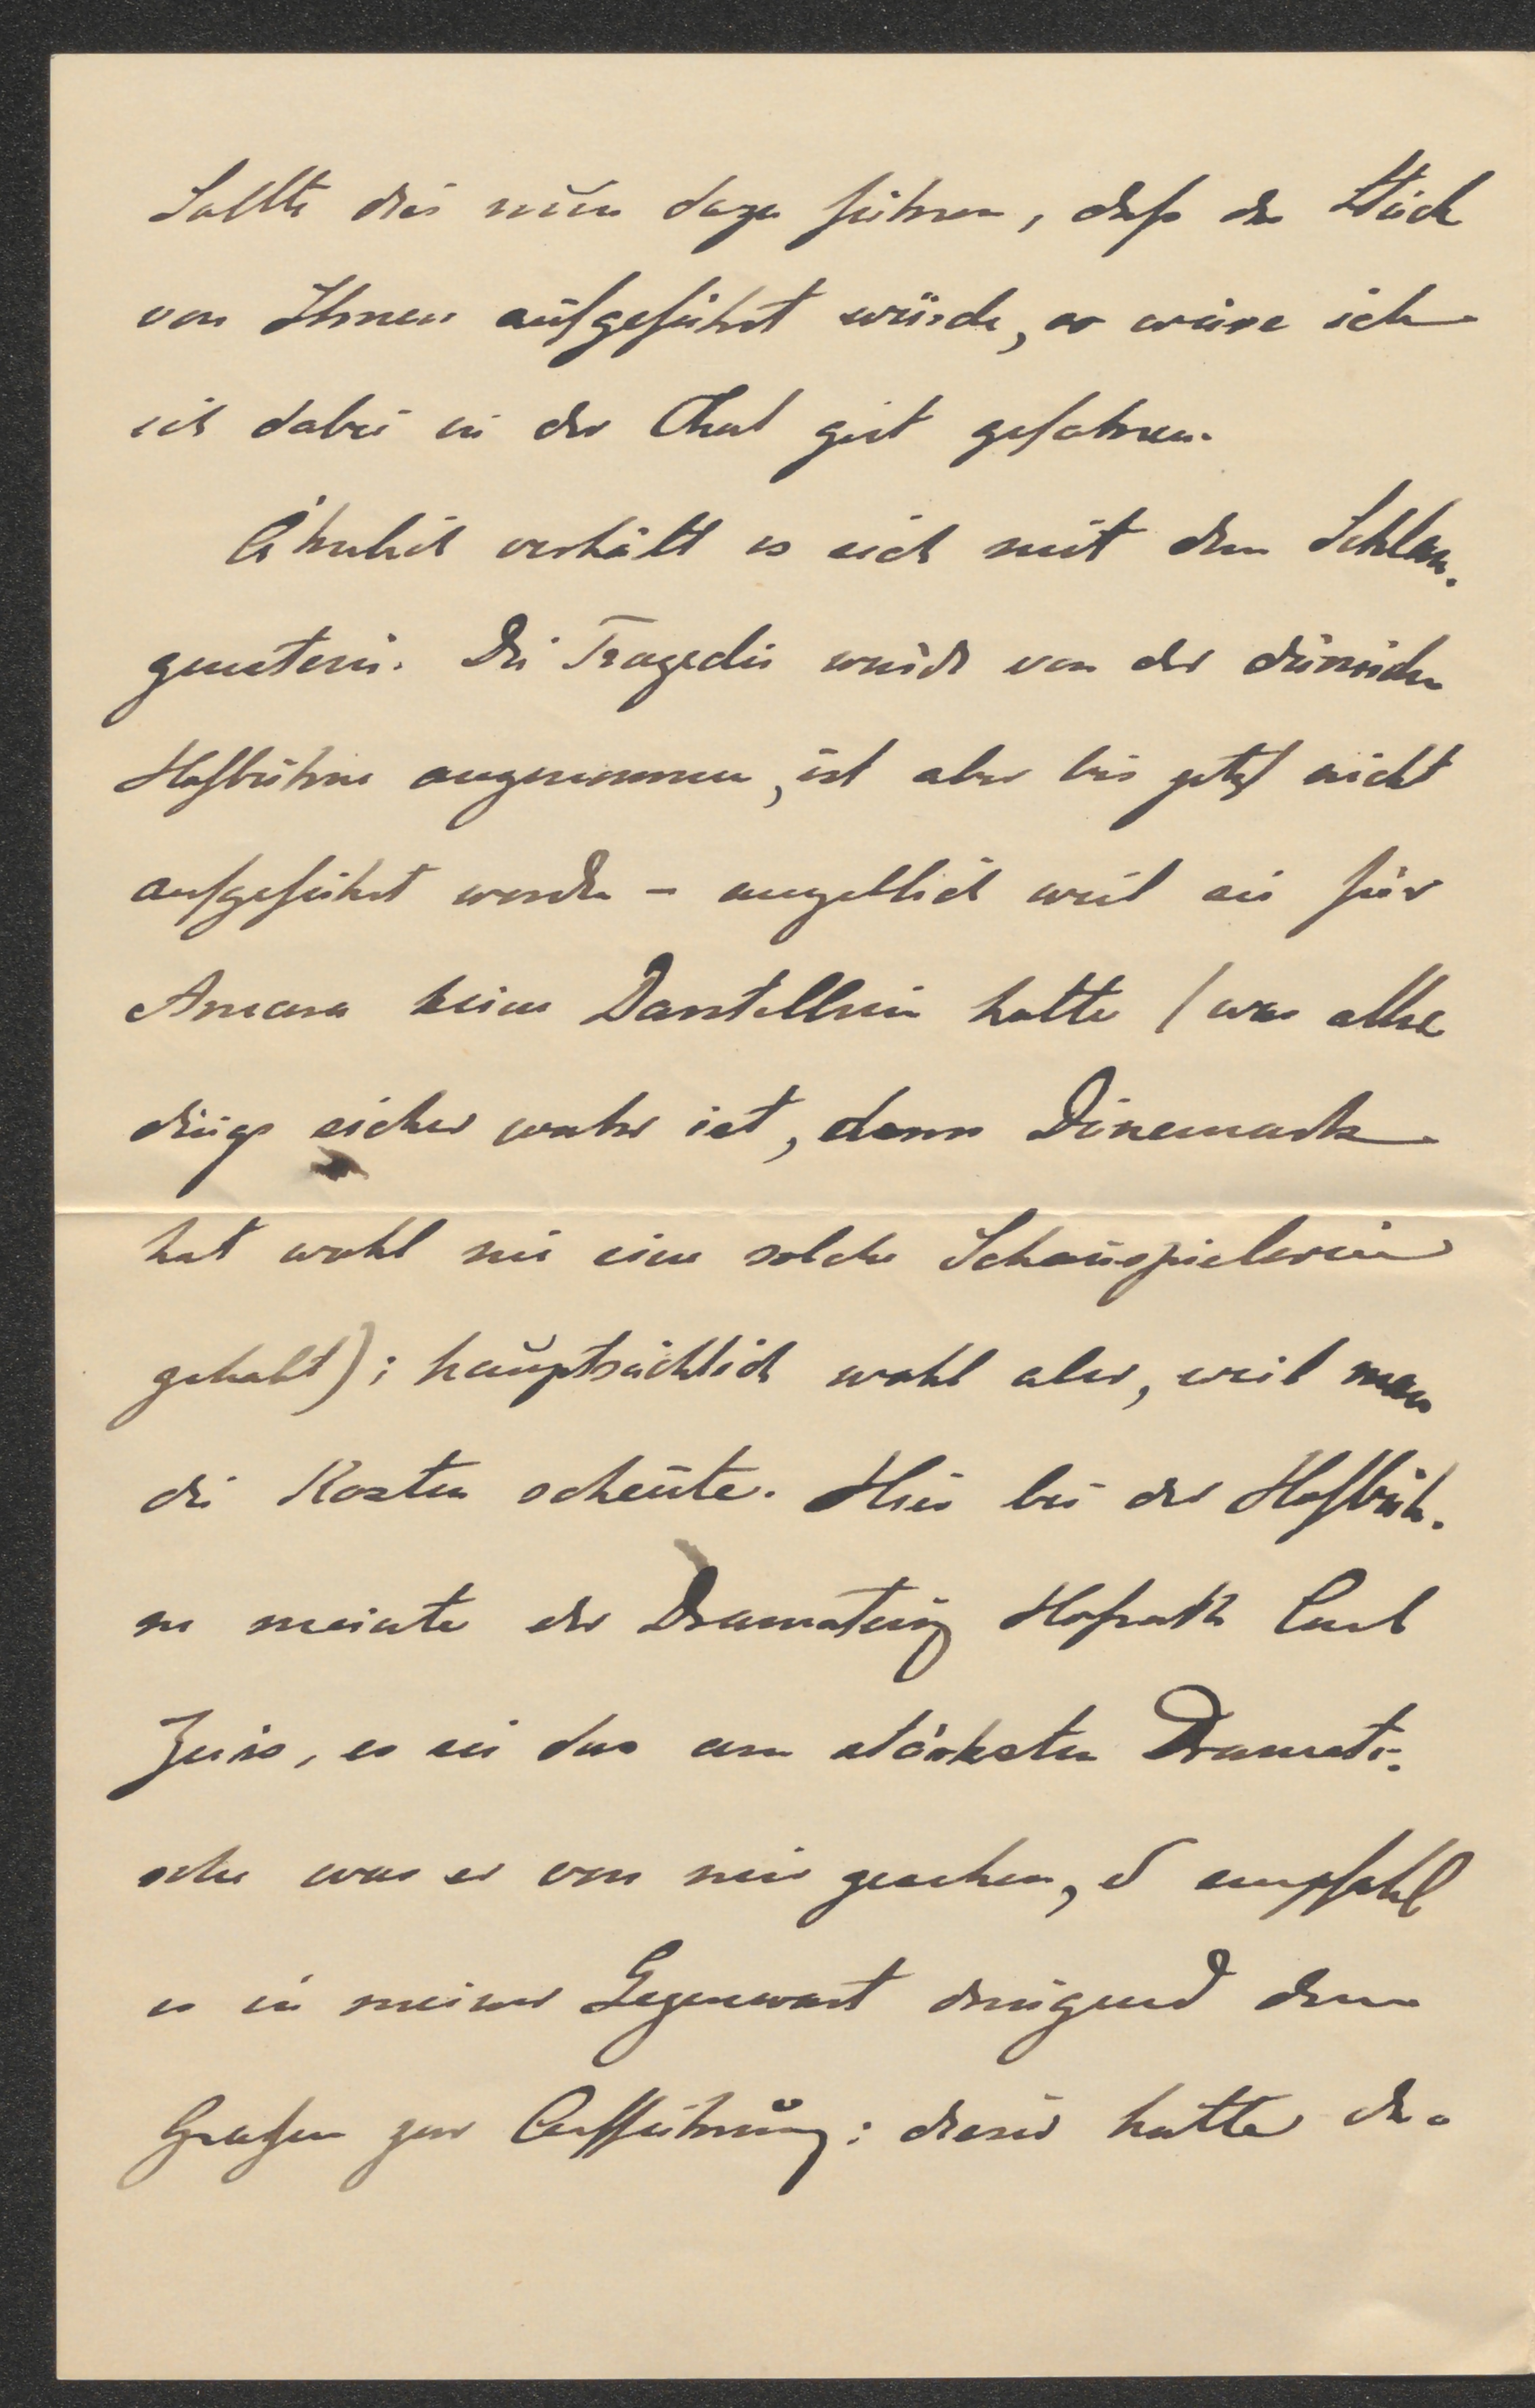 Sollte dies nun dazu führen, daß das Stück
von Ihnen aufgeführt würde, so wäre ich
ich dabei in der That gut gefahren.
Ähnlich verhält es sich mit dem Schlan-
genstein. Die Tragedie wurde von der dänischen
Hofbühne angenommen, ist aber bis jetzt nicht
aufgeführt worden – angeblich weil sie für
keine Darstellerin hatte (was aller
dings sicher wahr ist, denn Dänemark
hat wohl nie eine solche Schauspielerin
gehabt); hauptsächlich wohl aber, weil man
die Kosten scheute. Hier bei der Hofbüh-
ne meinte der Dramaturg Hofrath Carl
Zeiss, es sei das am stärksten Dramati-
sche was er von mir gesehen, & empfahl
es in meiner Gegenwart dringend dem
Grafen zur Aufführung: dieser hatte da-